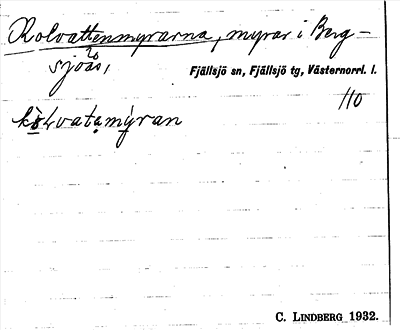 Kolvattenmyrarna, myrar i Berg-
sjöås,
Fjällsjö sn, Fjällsjö tg, Västernorrl. l.
110
kòlvatamýran
C. LINDBERG 1932.